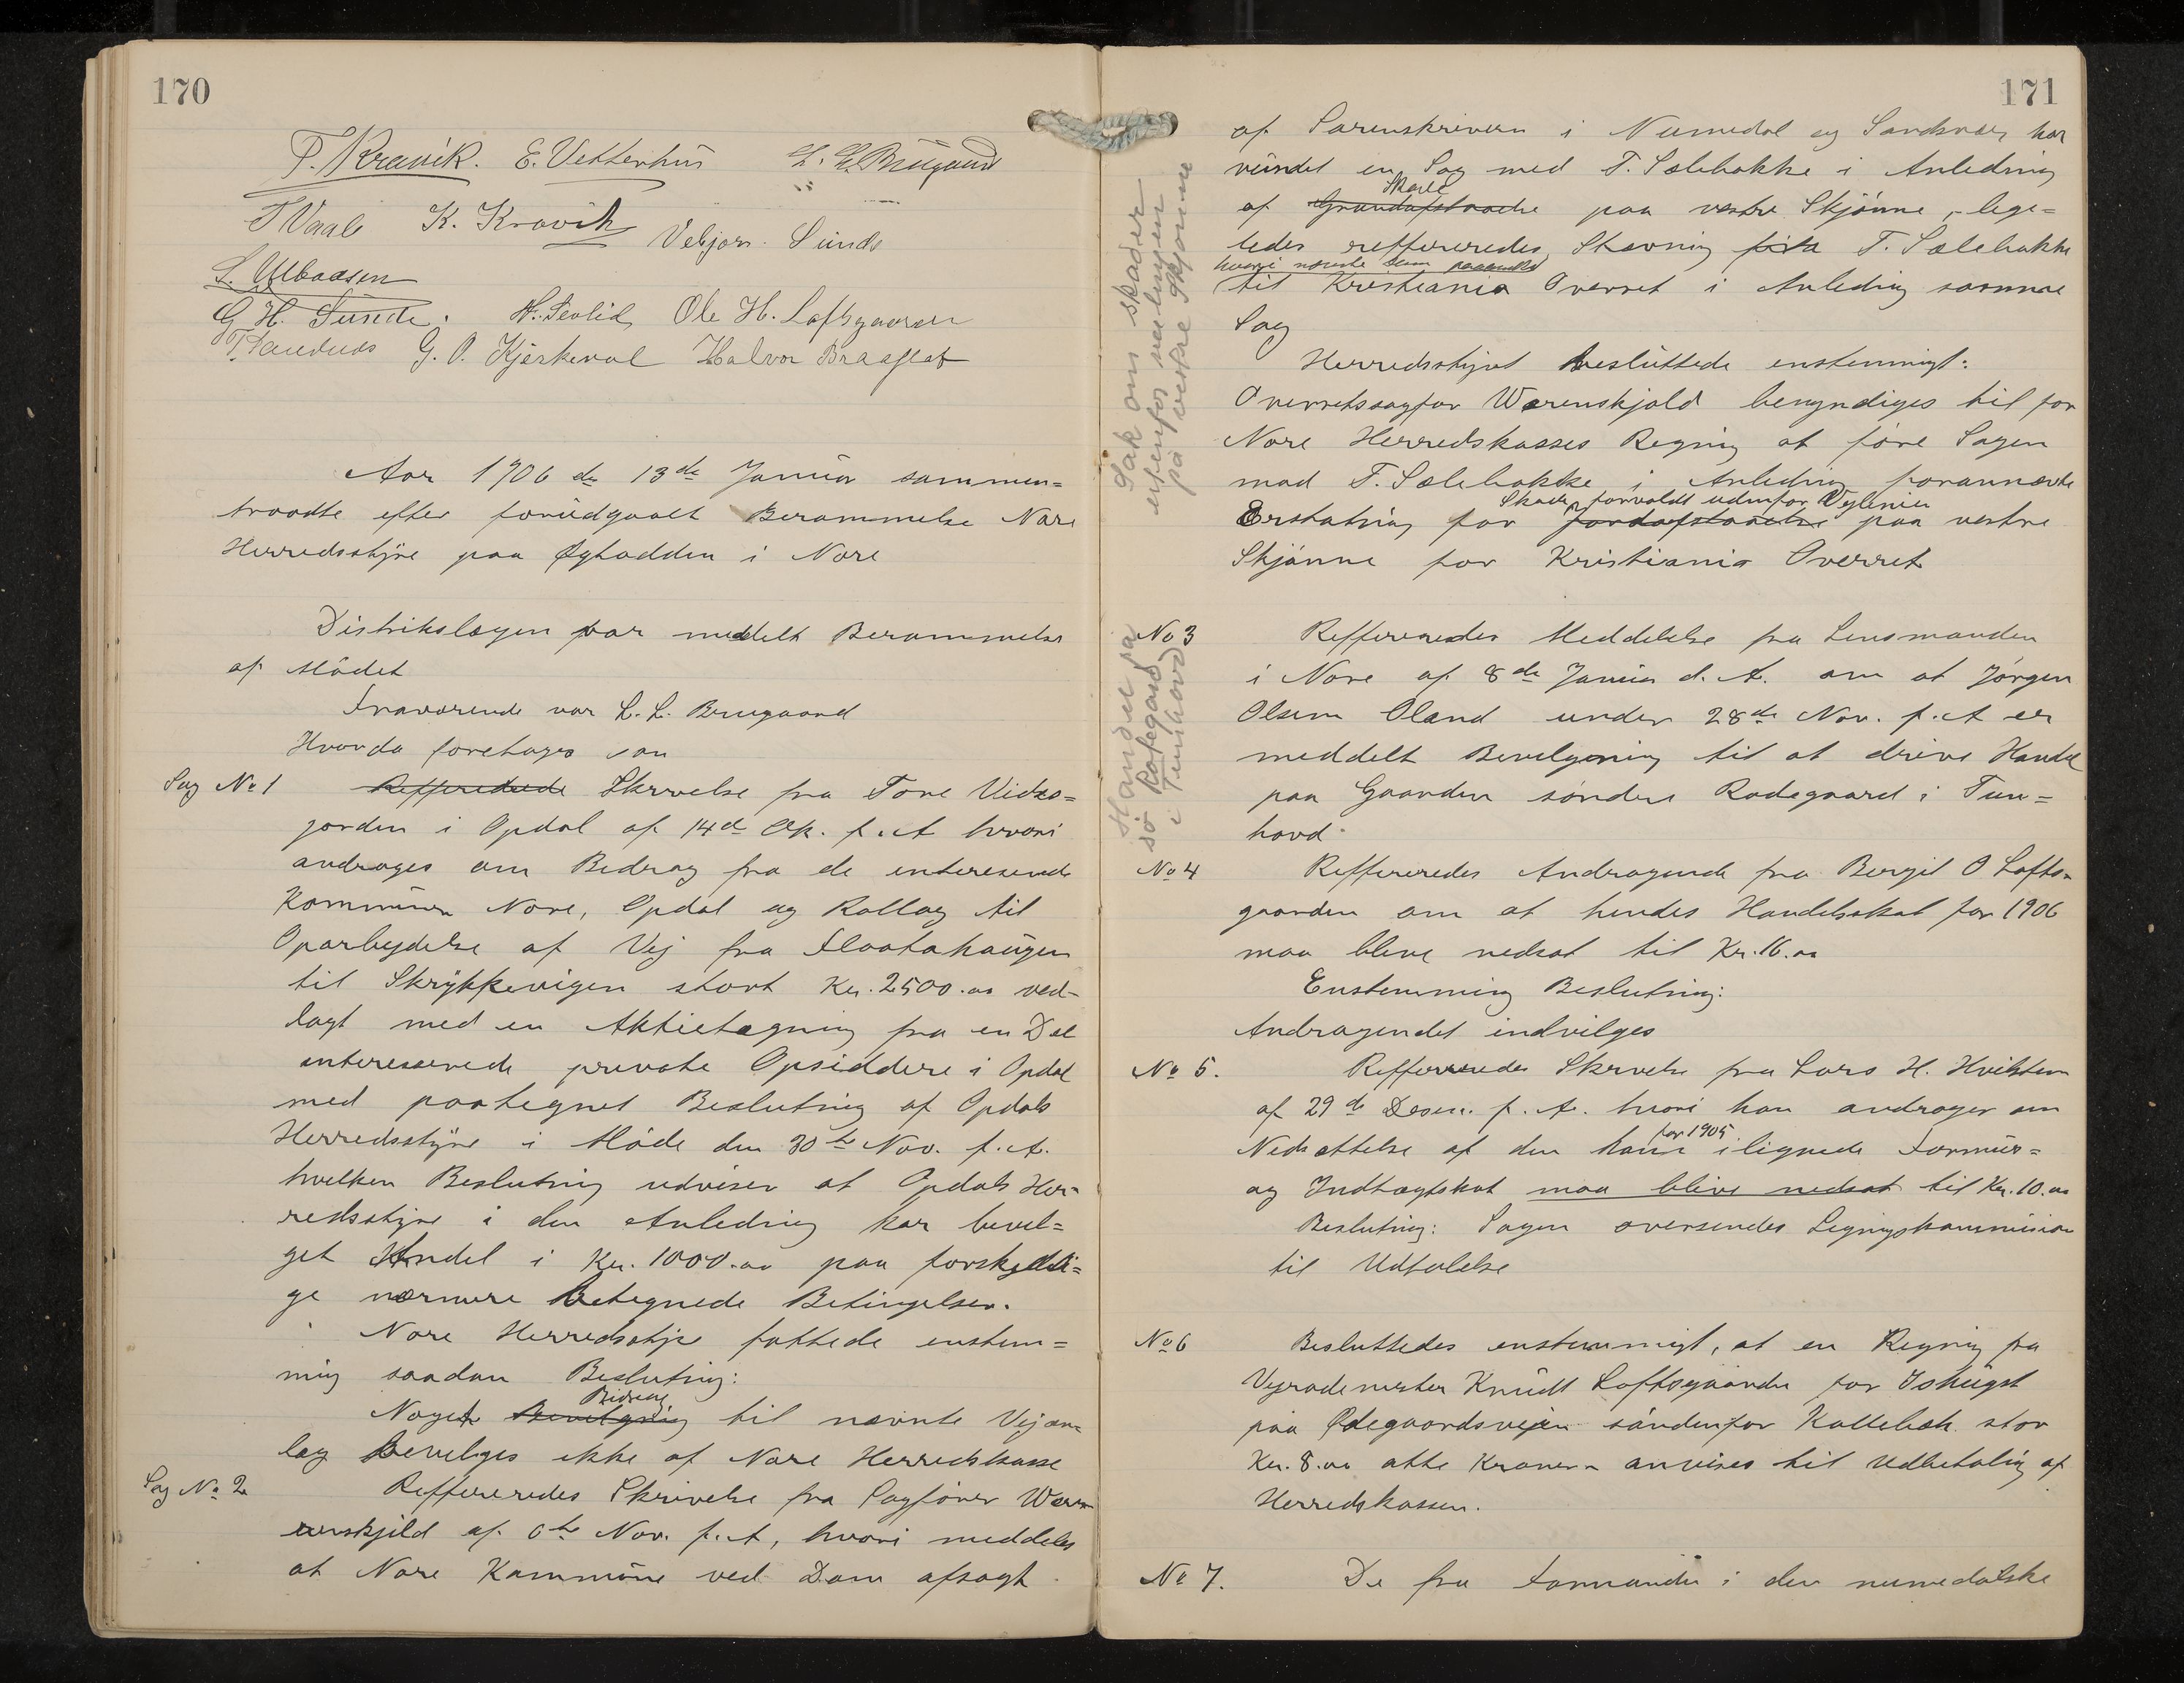 170
T. Kravik. E. Vetterhus L. L. Brugaard
T Vaale K. Kravik Vebjørn Sunde
G. H. Sunde. N. Sevlid Ole H. Loftsgaarden
G. O. Kjerkevol Halvor Braaflat
Aar 1906 den 13de Januar sammen=
traadte efter forudgaaet Berammelse Nore
Herredsstyre paa Øghadden i Nore
Distrikslægen var meddelt Berammelse
af Mødet
Fraværende var L. L. Brugaard
Hvorda foretages san
Sag No 1 Refferedede Skrivelse fra Tore Vidsø=
jorden i Opdal af 14de Ok. f. A hvori
andrages om Bidrag fra de enteresende
Kommuner Nore, Opdal og Rollag til
Oparbydelse af Vej fra Flaatahaugen
til Skrykkevigen stort Kr. 2500.00 ved-
lagt med en Aktietegning fra en Del
interesserede private Opsiddere i Opdal
med paategnet Beslutning af Opdals
Herredsstyre i Møde den 30te Nov. f. A.
hvelken Beslutning udviser at Opdals Her-
redsstyre i den Anledning har bevil=
get Andel i Kr. 1000.00 paa forskjelli=
ge nærmere betegnede Betingelser.
Nore Herredsstyre fattede enstem=
mig saadan Beslutning:
Bidrag
Noget Bevilgning til nævnte Vejan-
læg beviliges ikke af Nore Herredskasse
Sag No 2 Reffereredes Skrivelse fra Sagfører Waren
erenskjild af 6te Nov. f. A, hvori meddeles
at Nore Kommune ved Dom afsagt
171
af Sorenskriveren i Numedal og Sandsvær har
vundet en Sag med T. Sælebakke i Anledning
Skade
af Grundafstaaelse paa vestre Skjønne, lege=
ledes reffereredes Stævning fra T. Sælebakke
hvori nævnte Dom paaankes
til Kristiania Overret i Anledning samme
Sag
Herredsstyret besluttede enstemmigt:
Overretssagfør Warenskjold bemyndiges til for
Nore Herredskasses Regning at føre Sagen
mod T. Sælebakke i Anledning forannævnte
Skade forvoldt udenfor Vejlinien
Erstatning for Jordafstaaelse paa vestre
Skjønne for Kristiania Overret
Sak om skader
utenfor veilinjen
på vestre Skjønne
No 3 Reffereredes Meddelelse fra Lensmanden
i Nore af 8de Januar d. A. om at Jørgen
Olsen Øland under 28de Nov. f. A er
meddelt Bevilgning til at drive Handel
paa Gaarden søndre Rødegaard i Tun=
hovd.
Handel på
sø Rødegard
i Tunhovd
No 4 Reffereredes Andragende fra Bergit O Lofts-
gaarden om at hendes Handelsskat for 1906
maa blive nedsat til Kr. 16.00
Enstemmig Beslutning:
Andragendet indvilges
No 5. Reffereredes Skrivelse fra Lars H. Hvilsten
af 29de Desem. f. A. hvori han andrager om
for 1905
Nedsættelse af den ham ilignede Formues=
og Indtægtskat maa blive nedsat til Kr. 10.00
Beslutning: Sagen oversendes Legningskommision
til Udtalelse
No 6 Besluttedes enstemmigt, at en Regning fra
Vejrodemester Knudt Loftsgaarden for Ishugst
paa Ødegaardsvejen søndenfor Kattebæk stor
Kr. 8.00 otte Kroner - anvises til Udbetaling af
Herredskassen.
No 7. De fra Formanden i den numedalske